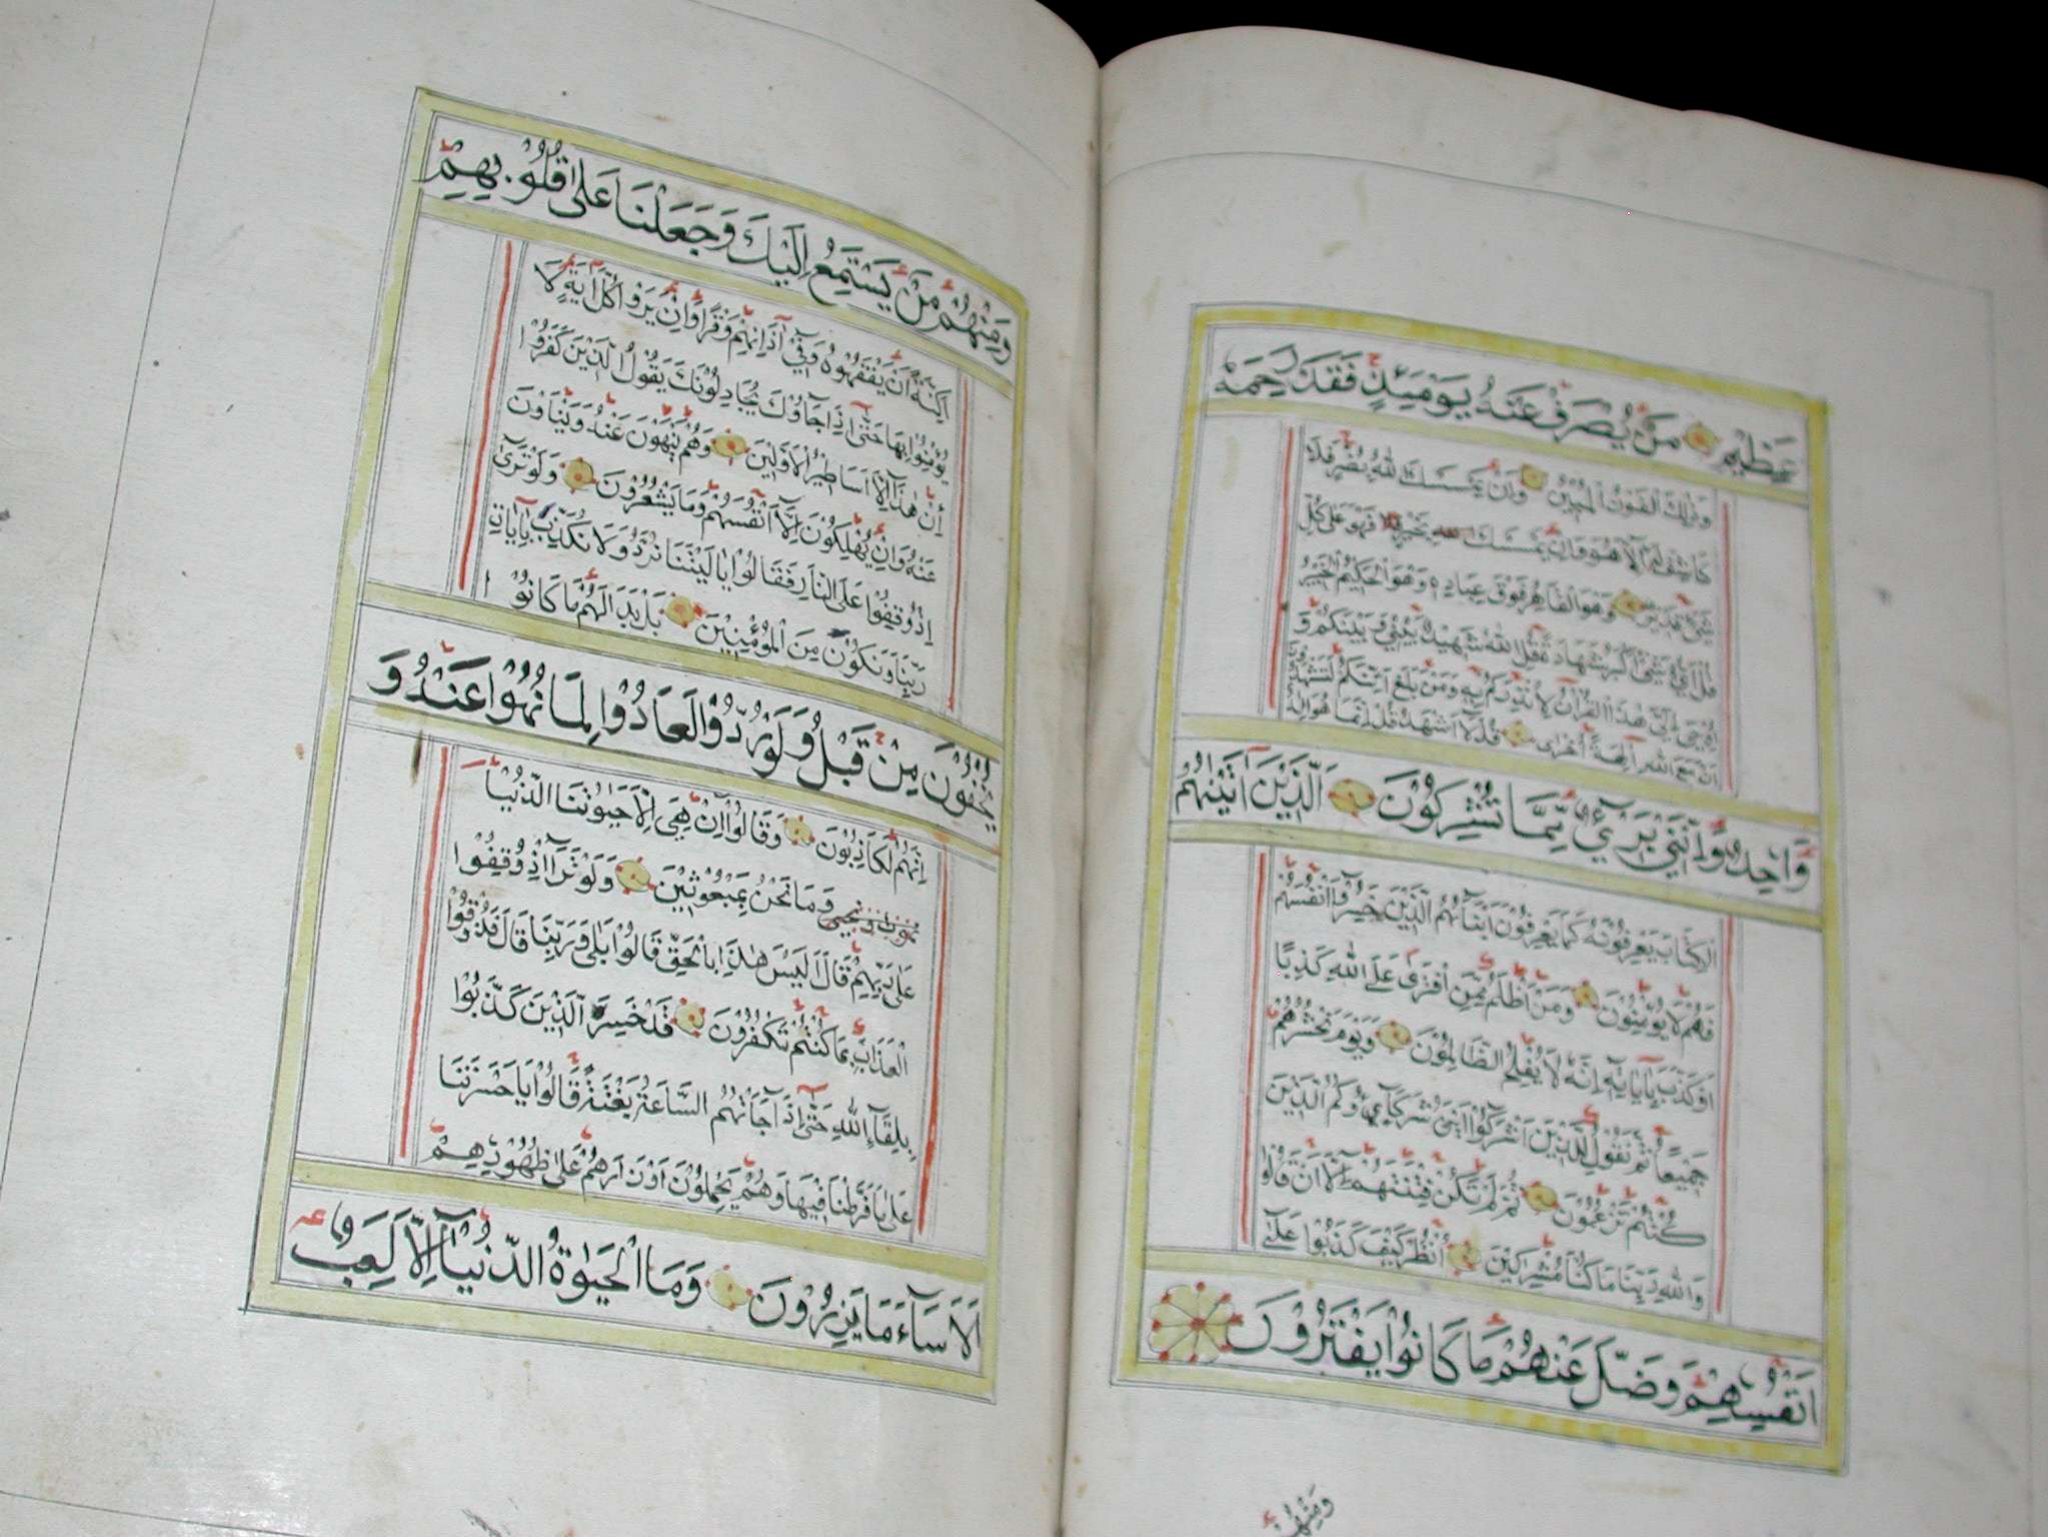 عَظِيمٍ مَنْ يُصْرَفْ عَنْهُ يَوْمَئِذٍ فَقَدْ رَحِمَهُ
وَذٰلِكَ الْفَوْزُ الْمُبِينُ وَاِنْ يَمْسَسْكَ اللّٰهُ بِضُرٍّ فَلَا
كَاشِفَ لَهُ اِلَّا هُوَ وَاِنْ يَمْسَسْكَ بِخَيْرٍ فَهُوَ عَلٰى كُلِّ
شَيْءٍ قَدِيرٌ وَهُوَ الْقَاهِرُ فَوْقَ عِبَادِهِ وَهُوَ الْحَكِيمُ الْخَبِيرُ
قُلْ اَيُّ شَيْءٍ اَكْبَرُ شَهَادَةً قُلِ اللّٰهُ شَهِيدٌ بَيْنِي وَبَيْنَكُمْ وَ
اُوحِيَ اِلَيَّ هٰذَا الْقُرْاٰنُ لِاُنْذِرَكُمْ بِهِ وَمَنْ بَلَغَ اَئِنَّكُمْ لَتَشْهَدُونَ
اَنَّ مَعَ اللّٰهِ اٰلِهَةً اُخْرٰى قُلْ لَا اَشْهَدُ قُلْ اِنَّمَا هُوَ اِلٰهٌ
وَاحِدٌ وَاِنَّنِي بَرِيءٌ مِمَّا تُشْرِكُونَ اَلَّذِينَ اٰتَيْنَاهُمُ
الْكِتَابَ يَعْرِفُونَهُ كَمَا يَعْرِفُونَ اَبْنَاءَهُمُ الَّذِينَ خَسِرُوا اَنْفُسَهُمْ
فَهُمْ لَا يُؤْمِنُونَ وَمَنْ اَظْلَمُ مِمَّنِ افْتَرٰى عَلَى اللّٰهِ كَذِبًا
اَوْ كَذَّبَ بِاٰيَاتِهِ اِنَّهُ لَا يُفْلِحُ الظَّالِمُونَ وَيَوْمَ نَحْشُرُهُمْ
جَمِيعًا ثُمَّ نَقُولُ لِلَّذِينَ اَشْرَكُوا اَيْنَ شُرَكَاؤُكُمُ الَّذِينَ
كُنْتُمْ تَزْعُمُونَ ثُمَّ لَمْ تَكُنْ فِتْنَتُهُمْ اِلَّا اَنْ قَالُوا
وَاللّٰهِ رَبِّنَا مَا كُنَّا مُشْرِكِينَ اُنْظُرْ كَيْفَ كَذَبُوا عَلٰى
اَنْفُسِهِمْ وَضَلَّ عَنْهُمْ مَا كَانُوا يَفْتَرُونَ
وَمِنْهُمْ
وَمِنْهُمْ مَنْ يَسْتَمِعُ اِلَيْكَ وَجَعَلْنَا عَلٰى قُلُوبِهِمْ
اَكِنَّةً اَنْ يَفْقَهُوهُ وَفِي اٰذَانِهِمْ وَقْرًا وَاِنْ يَرَوْا كُلَّ اٰيَةٍ لَا
يُؤْمِنُوا بِهَا حَتّٰى اِذَا جَاؤُكَ يُجَادِلُونَكَ يَقُولُ الَّذِينَ كَفَرُوا
اِنْ هٰذَا اِلَّا اَسَاطِيرُ الْاَوَّلِينَ وَهُمْ يَنْهَوْنَ عَنْهُ وَيَنْأَوْنَ
عَنْهُ وَاِنْ يُهْلِكُونَ اِلَّا اَنْفُسَهُمْ وَمَا يَشْعُرُونَ وَلَوْ تَرٰى
اِذْ وُقِفُوا عَلَى النَّارِ فَقَالُوا يَا لَيْتَنَا نُرَدُّ وَلَا نُكَذِّبَ بِاٰيَاتِ
رَبِّنَا وَنَكُونَ مِنَ الْمُؤْمِنِينَ بَلْ بَدَا لَهُمْ مَا كَانُوا
يُخْفُونَ مِنْ قَبْلُ وَلَوْ رُدُّوا لَعَادُوا لِمَا نُهُوا عَنْهُ وَ
اِنَّهُمْ لَكَاذِبُونَ وَقَالُوا اِنْ هِيَ اِلَّا حَيٰوتُنَا الدُّنْيَا
نَمُوتُ وَنَحْيٰى وَمَا نَحْنُ بِمَبْعُوثِينَ وَلَوْ تَرٰى اِذْ وُقِفُوا
عَلٰى رَبِّهِمْ قَالَ اَلَيْسَ هٰذَا بِالْحَقِّ قَالُوا بَلٰى وَرَبِّنَا قَالَ فَذُوقُوا
الْعَذَابَ بِمَا كُنْتُمْ تَكْفُرُونَ قَدْ خَسِرَ الَّذِينَ كَذَّبُوا
بِلِقَاءِ اللّٰهِ حَتّٰى اِذَا جَاءَتْهُمُ السَّاعَةُ بَغْتَةً قَالُوا يَا حَسْرَتَنَا
عَلٰى مَا فَرَّطْنَا فِيهَا وَهُمْ يَحْمِلُونَ اَوْزَارَهُمْ عَلٰى ظُهُورِهِمْ
اَلَا سَاءَ مَا يَزِرُونَ وَمَا الْحَيٰوةُ الدُّنْيَا اِلَّا لَعِبٌ وَ